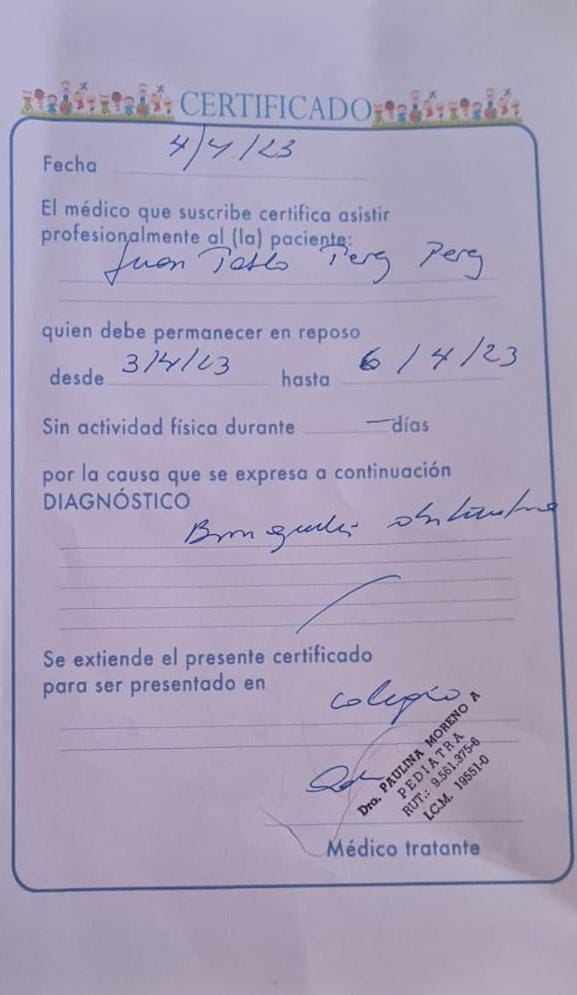 CERTIFICADO
Fecha 4/4/23
El médico que suscribe certifica asistir
profesionalmente al (la) paciente:
Juan Pablo Perez Perez
quien debe permanecer en reposo
desde 3/4/23 hasta 6/4/23
Sin actividad física durante — días
por la causa que se expresa a continuación
DIAGNÓSTICO
Bronquitis obstructiva
Se extiende el presente certificado
para ser presentado en
colegio
Dra. PAULINA MORENO A
PEDIATRA
RUT.: 9.561.375-6
I.C.M. 19551-0
Médico tratante